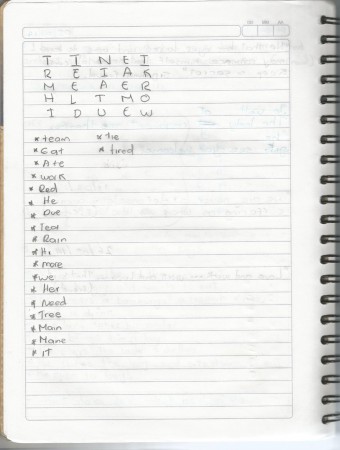 T I N E I
R E I A K
M E A E R
H L T M O
I D U E W
* team * tie
* Eat * tired
* Ate
* work
* Red
* He
* Due
* Tear
* Rain
* Hi
* more
* we
* Her
* Need
* Tree
* Main
* Mane
* IT